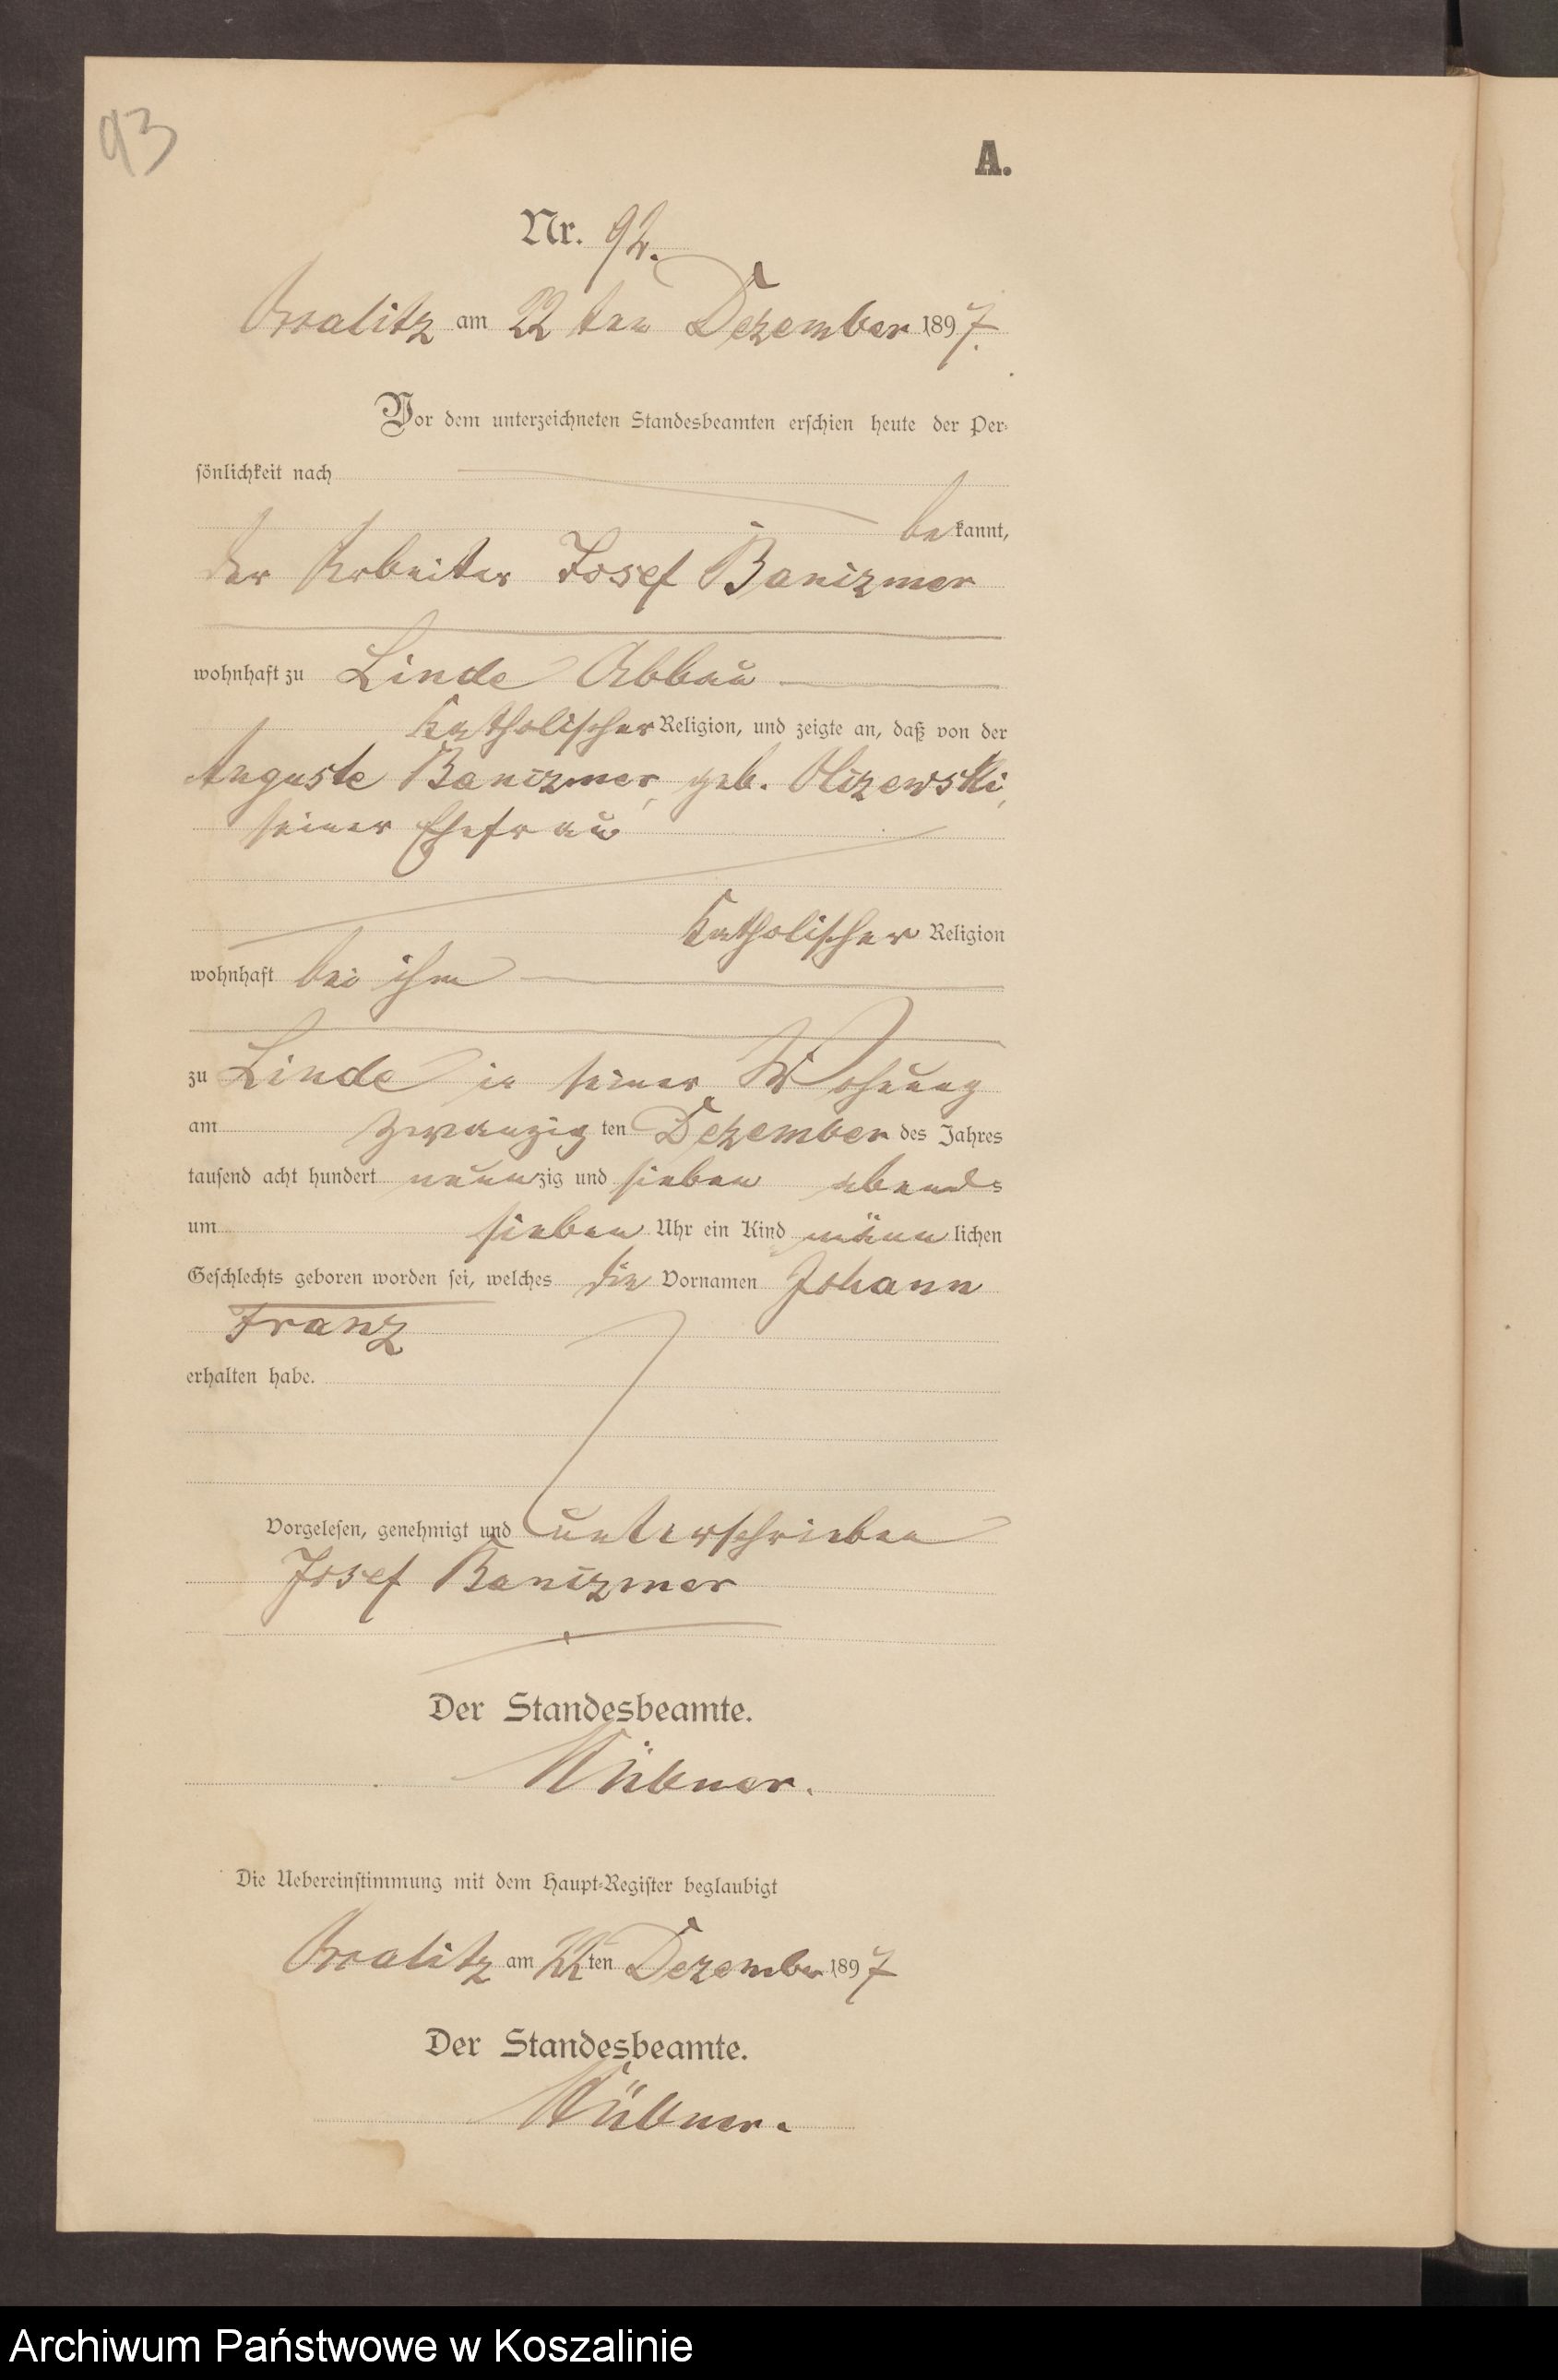 93
A.
Nr. 92.
am 22 ten Dezember 1897.
Vor dem unterzeichneten Standesbeamten erschien heute der Per-
sönlichkeit nach
bekannt,
der Arbeiter Josef Banizmer
wohnhaft zu Linde Abbau
katholischer Religion, und zeigte an, daß von der
Auguste Banizmer, geb. Olizewski,
seiner Ehefrau
katholischer Religion
wohnhaft bei ihm
zu Linde in seiner Wohnung
am zwanzigten Dezember des Jahres
tausend acht hundert neunzig und sieben abends
um sieben Uhr ein Kind männlichen
Geschlechts geboren worden sei, welches die Vornamen Johann
Franz
erhalten habe.
Vorgelesen, genehmigt und unterschrieben
Josef Banizmer
Der Standesbeamte.
Die Uebereinstimmung mit dem Haupt-Register beglaubigt
am 22ten Dezember 1897
Der Standesbeamte.
Archiwum Państwowe w Koszalinie